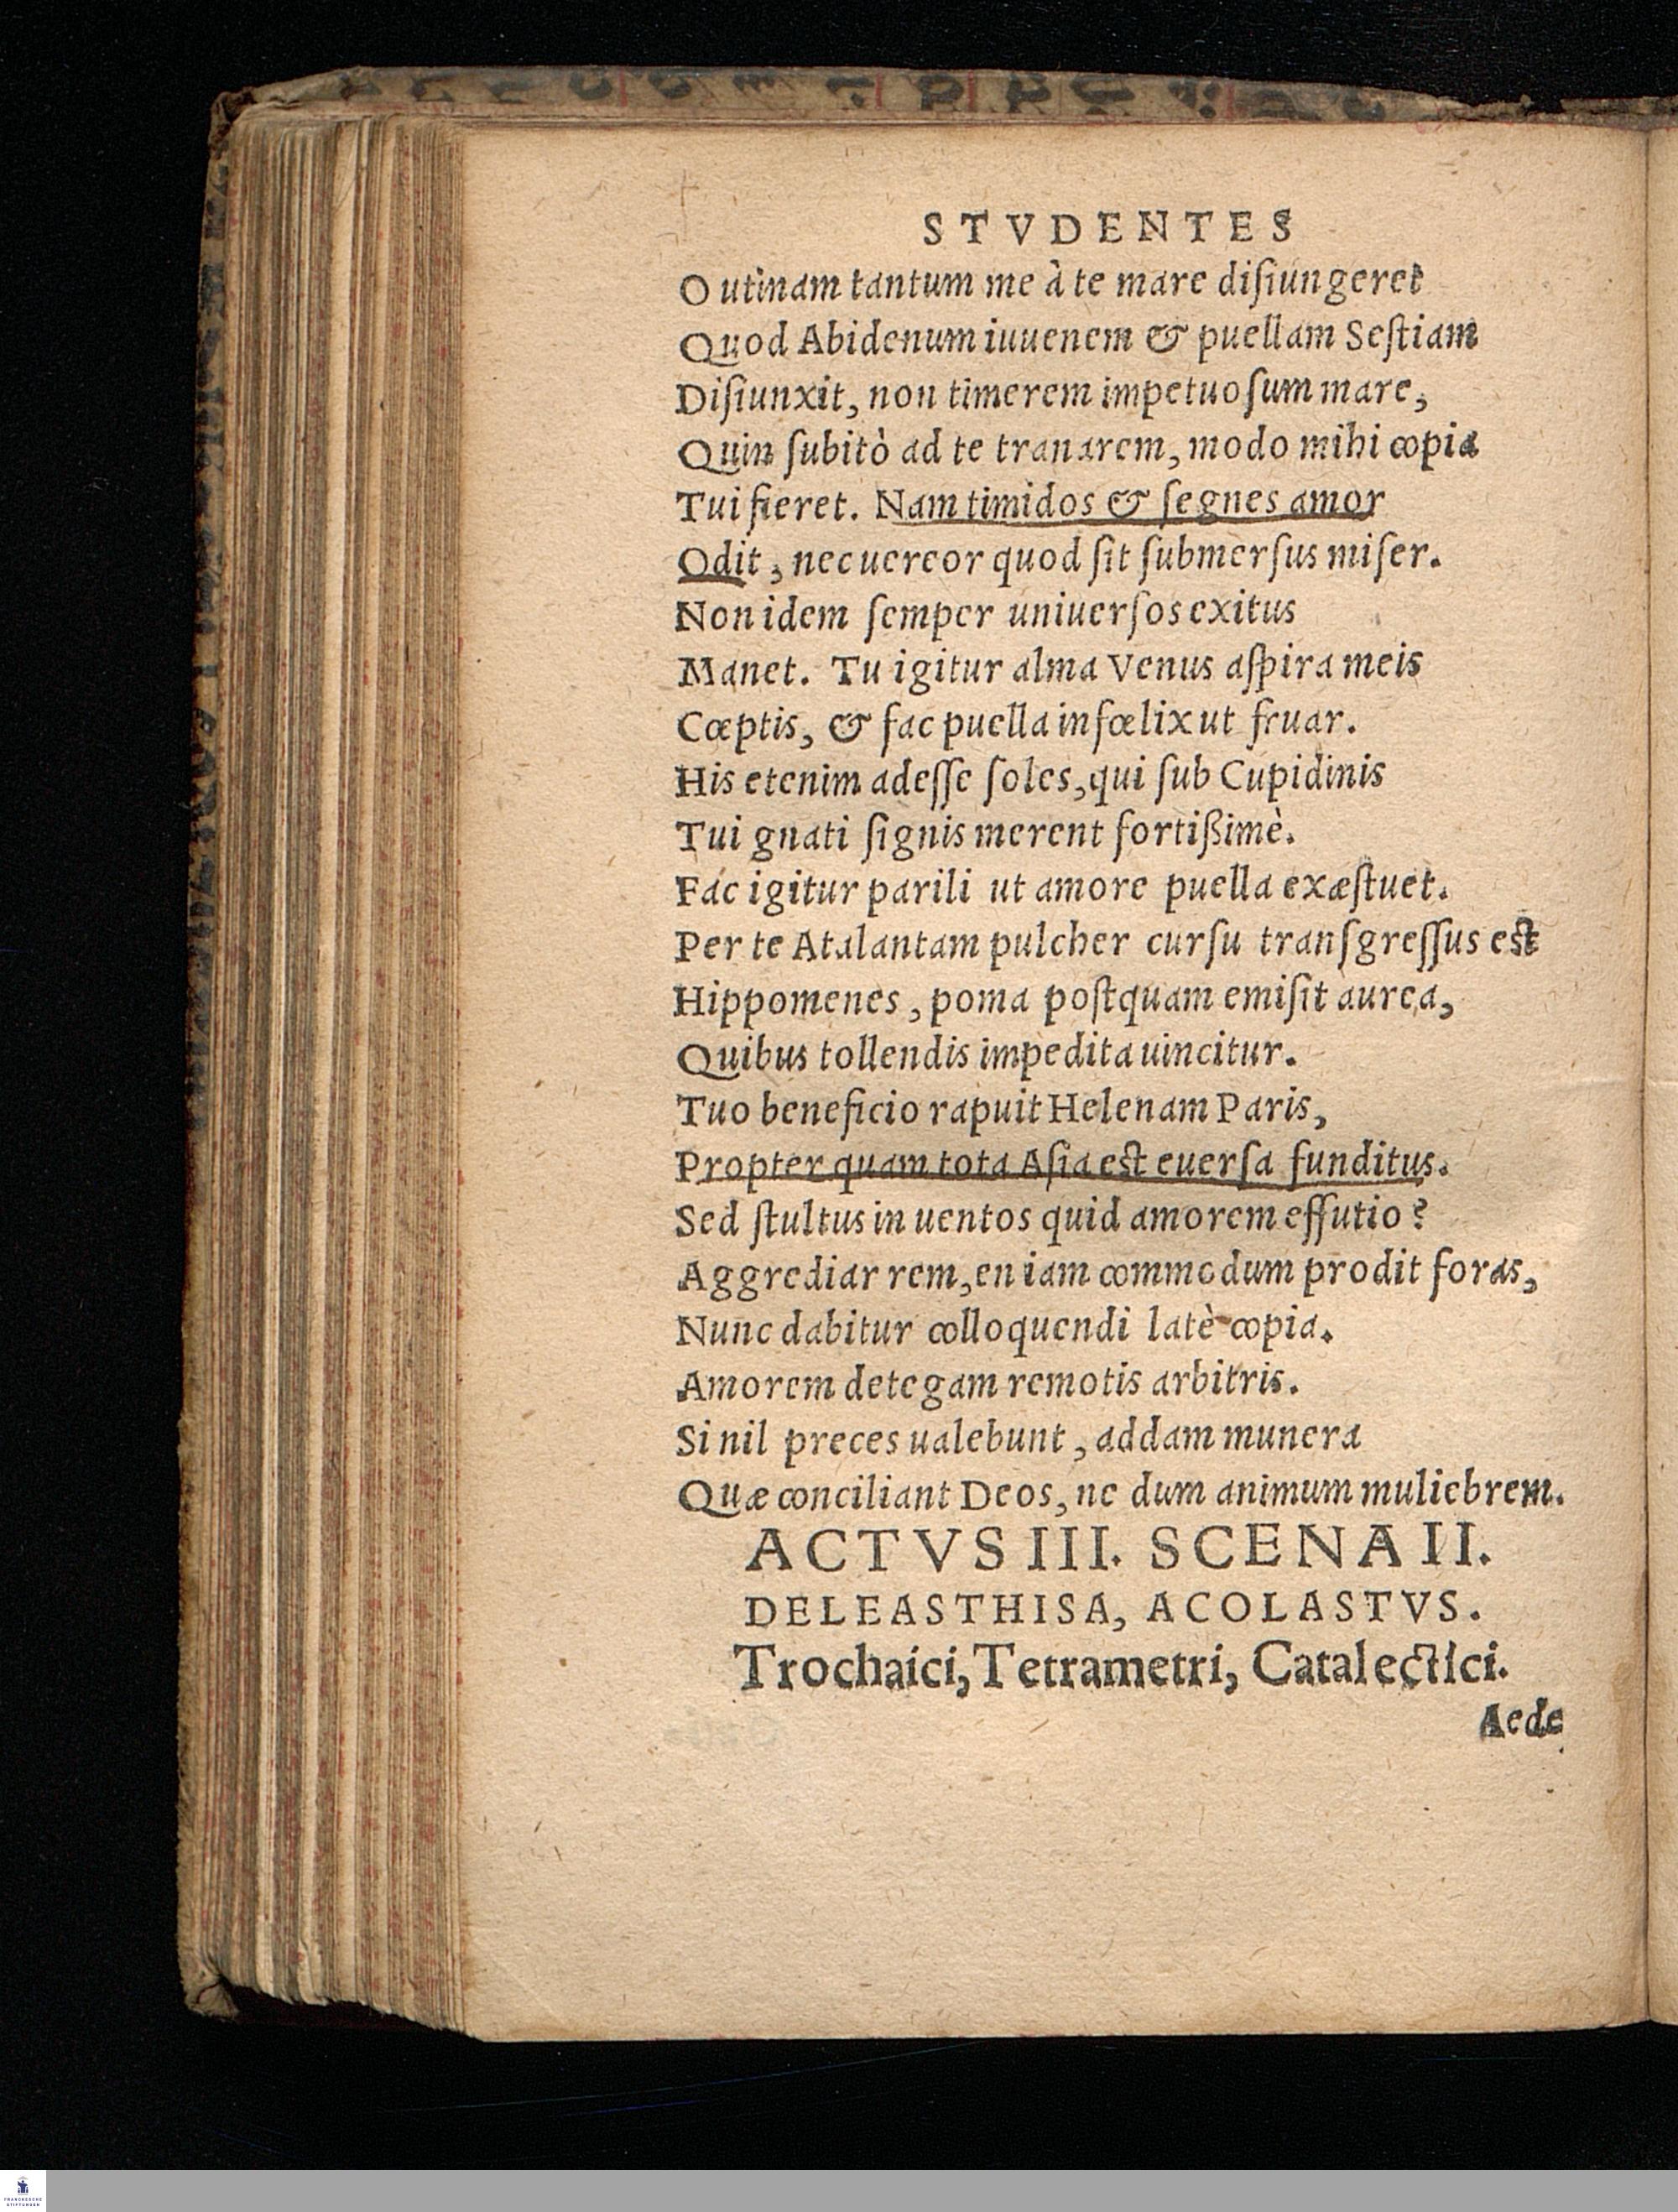 STVDENTES
O utinam tantum me à te mare diſiungeret
Quod Abidenum iuuenem & puellam Seſtiam
Diſiunxit, non timerem impetuoſum mare,
Quin ſubitò ad te tranarem, modo mihi copia
Tui fieret. Nam timidos & ſegnes amor
Odit, nec uereor quod ſit ſubmerſus miſer.
Non idem ſemper uniuerſos exitus
Manet. Tu igitur alma Venus aſpira meis
Cœptis, & fac puella infœlix ut fruar.
His etenim adeſſe ſoles, qui ſub Cupidinis
Tui gnati ſignis merent fortißimè.
Fac igitur parili ut amore puella exæſtuet.
Per te Atalantam pulcher curſu tranſgreſſus eſt
Hippomenes, poma poſtquam emiſit aurea,
Quibus tollendis impedita uincitur.
Tuo beneficio rapuit Helenam Paris,
Propter quam tota Aſia eſt euerſa funditus.
Sed ſtultus in uentos quid amorem effutio?
Aggrediar rem, en iam commodum prodit foras,
Nunc dabitur colloquendi latè copia.
Amorem detegam remotis arbitris.
Si nil preces ualebunt, addam munera
Quæ conciliant Deos, ne dum animum muliebrem.
ACTVS III. SCENA II.
DELEASTHISA, ACOLASTVS.
Trochaici, Tetrametri, Catalectici.
Aede
FRANCKESCHE
STIFTUNGEN